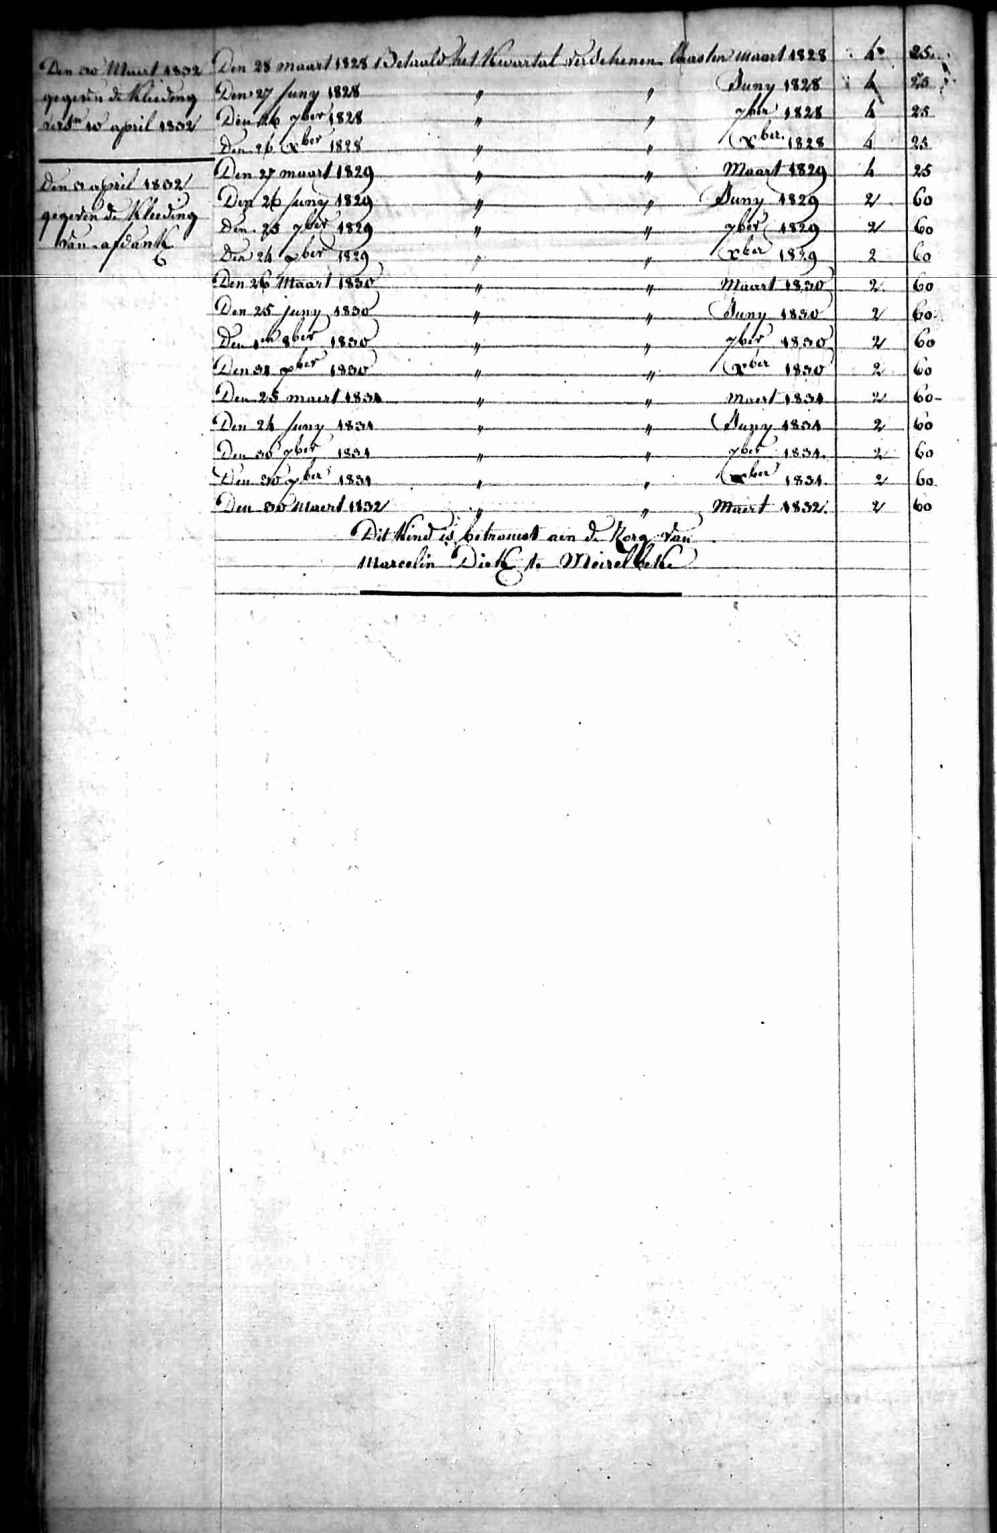 Den 30 Maert 1832
gegeven de Kleeding
10 april 1832
Den 3 april 1832
gegeven de Kleeding
van afdank
Den 28 maart 1828 Betaald het Kwartal verschenen maart 1828 4 25
Den 27 juny 1828 " " Juny 1828 4 25
Den 26 7ber 1828 " " 7ber 1828 4 25
Den 26 Xber 1828 " " Xber 1828 4 25
Den 27 maart 1829 " " Maart 1829 4 25
Den 26 juny 1829 " " Juny 1829 2 60
Den 25 7ber 1829 " " 7ber 1829 2 60
Den 24 xber 1829 " " Xber 1829 2 60
Den 26 Maart 1830 " " Maart 1830 2 60
Den 25 juny 1830 " " Juny 1830 2 60
Den 1en 8ber 1830 " " 7ber 1830 2 60
Den 31 xber 1830 " " Xber 1830 2 60
Den 25 maert 1831 " " maert 1831 2 60
Den 24 juny 1831 " " Juny 1831 2 60
Den 30 7ber 1831 " " 7ber 1831 2 60
Den 30 xber 1831 " " xber 1831 2 60
Den 30 Maert 1832 " " Maert 1832 2 60
Dit Kind is betrouwt aen de Zorg van
Marcelin Dick te Meirelbeke